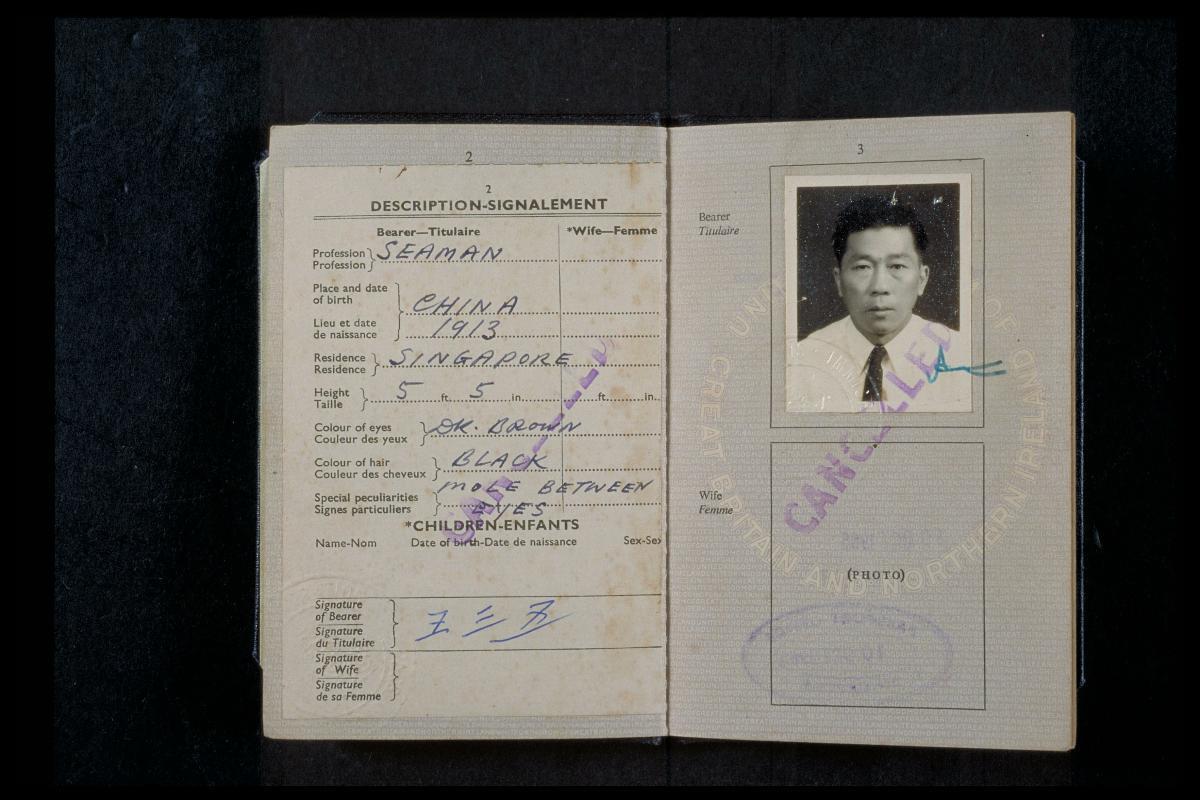 2
2
DESCRIPTION-SIGNALEMENT
Bearer—Titulaire
*Wife—Femme
Profession
Profession
SEAMAN
Place and date
of birth
CHINA
Lieu et date
de naissance
1913
Residence
Residence
SINGAPORE
Height
Taille
5 ft. 5 in. ft. in.
Colour of eyes
Couleur des yeux
DK. BROWN
Colour of hair
Couleur des cheveux
BLACK
Special peculiarities
Signes particuliers
MOLE BETWEEN
EYES
*CHILDREN-ENFANTS
Name-Nom Date of birth-Date de naissance Sex-Sex
Signature
of Bearer
Signature
du Titulaire
王三
Signature
of Wife
Signature
de sa Femme
3
Bearer
Titulaire
CANCELLED
Wife
Femme
(PHOTO)
GREAT BRITAIN AND NORTHERN IRELAND